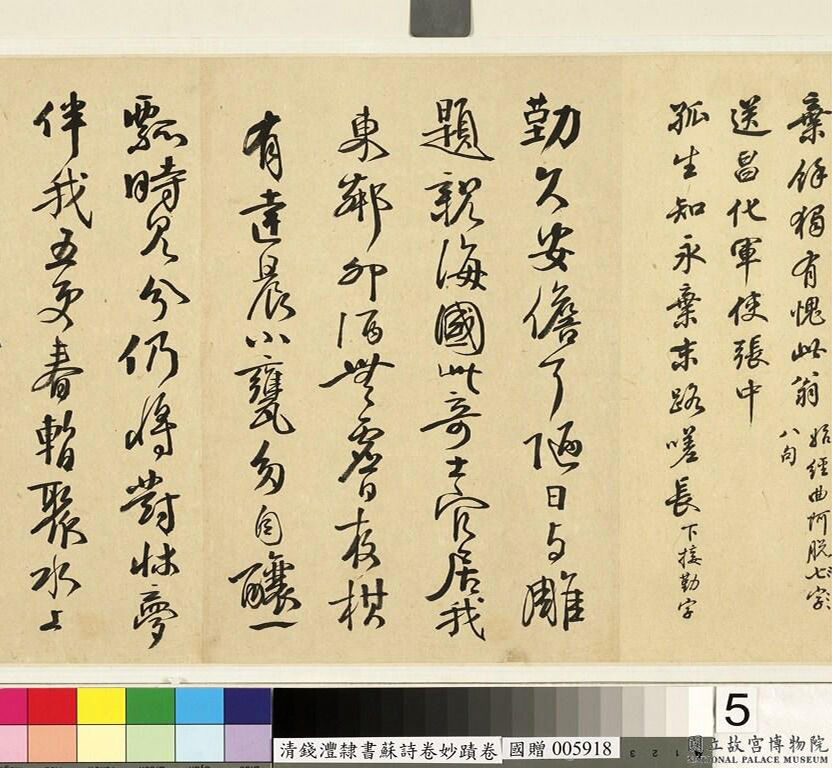 棄餘獨有愧此翁
始經曲阿脫七字
八句
送昌化軍使張中
孤生知永棄末路嗟長
下接勤字
勤久安儋耳陋日与雕
題親海國此奇士官居我
東鄰卯酒無虛日夜棋
有達晨小甕多自釀一
瓢時見分仍將對床夢
伴我五更春暫聚水上
5
清錢灃隸書蘇詩卷妙蹟卷
國贈 005918
國立故宮博物院
NATIONAL PALACE MUSEUM